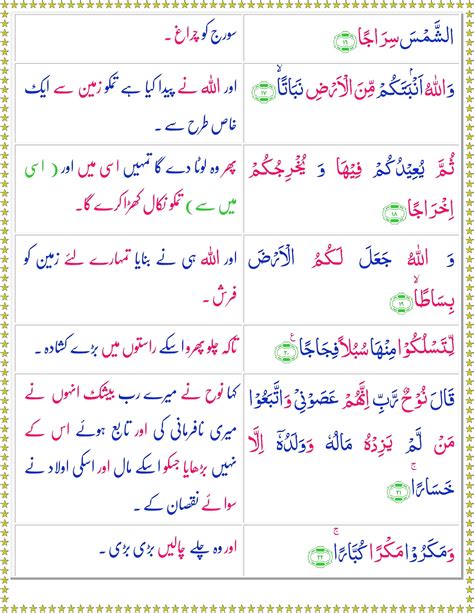 الشَّمْسَ سِرَاجًا ﴿۱۶﴾
سورج کو چراغ ۔
وَاللّٰهُ اَنْۢبَتَكُمْ مِّنَ الْاَرْضِ نَبَاتًا ۙ﴿۱۷﴾
اور اللہ نے پیدا کیا ہے تمکو زمین سے ایک
خاص طرح سے ۔
ثُمَّ يُعِيْدُكُمْ فِيْهَا وَ يُخْرِجُكُمْ
اِخْرَاجًا ﴿۱۸﴾
پھر وہ لوٹا دے گا تمہیں اسی میں اور ( اسی
میں سے ) تمکو نکال کھڑا کرے گا۔
وَ اللّٰهُ جَعَلَ لَكُمُ الْاَرْضَ
بِسَاطًا ۙ﴿۱۹﴾
اور اللہ ہی نے بنایا تمہارے لئے زمین کو
فرش ۔
لِّتَسْلُكُوْا مِنْهَا سُبُلًا فِجَاجًا ۧ﴿۲۰﴾
تاکہ چلو پھرو اسکے راستوں میں بڑے کشادہ ۔
قَالَ نُوْحٌ رَّبِّ اِنَّهُمْ عَصَوْنِيْ وَاتَّبَعُوْا
مَنْ لَّمْ يَزِدْهُ مَالُهٗ وَوَلَدُهٗۤ اِلَّا
خَسَارًا ۚ﴿۲۱﴾
کہا نوح نے میرے رب بیشک انہوں نے
میری نافرمانی کی اور تابع ہوئے اس کے
نہیں بڑھایا جسکو اسکے مال اور اسکی اولاد نے
سوائے نقصان کے ۔
وَمَكَرُوْا مَكْرًا كُبَّارًا ۚ﴿۲۲﴾
اور وہ چلے چالیں بڑی بڑی ۔